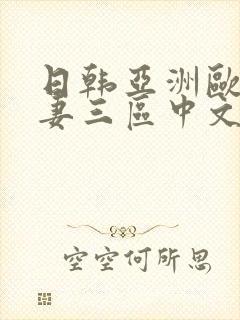 日韩亞洲歐
妻三區中文
空空何所思